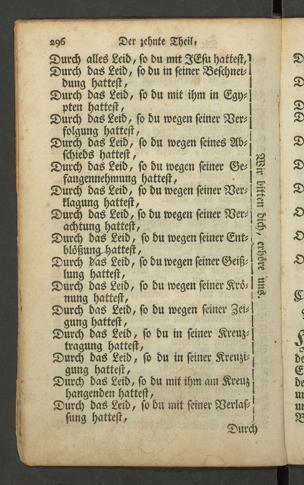 296 Der zehnte Theil,
Durch alles Leid, so du mit JEsu hattest,
Durch das Leid, so du in seiner Beschnei-
dung hattest,
Durch das Leid, so du mit ihm in Egy-
pten hattest,
Durch das Leid, so du wegen seiner Ver-
folgung hattest,
Durch das Leid, so du wegen seines Ab-
schieds hattest,
Durch das Leid, so du wegen seiner Ge-
fangennehmung hattest,
Durch das Leid, so du wegen seiner Ver-
klagung hattest,
Durch das Leid, so du wegen seiner Ver-
achtung hattest,
Durch das Leid, so du wegen seiner Ent-
blößung hattest,
Durch das Leid, so du wegen seiner Geiß-
lung hattest,
Durch das Leid, so du wegen seiner Krö-
nung hattest,
Durch das Leid, so du wegen seiner Zei-
gung hattest,
Durch das Leid, so du in seiner Kreuz-
tragung hattest,
Durch das Leid, so du in seiner Kreuzi-
gung hattest,
Durch das Leid, so du mit ihm am Kreuz
hangenden hattest,
Durch das Leid, so du mit seiner Verlas-
sung hattest,
Durch
Wir bitten dich, erhöre uns.